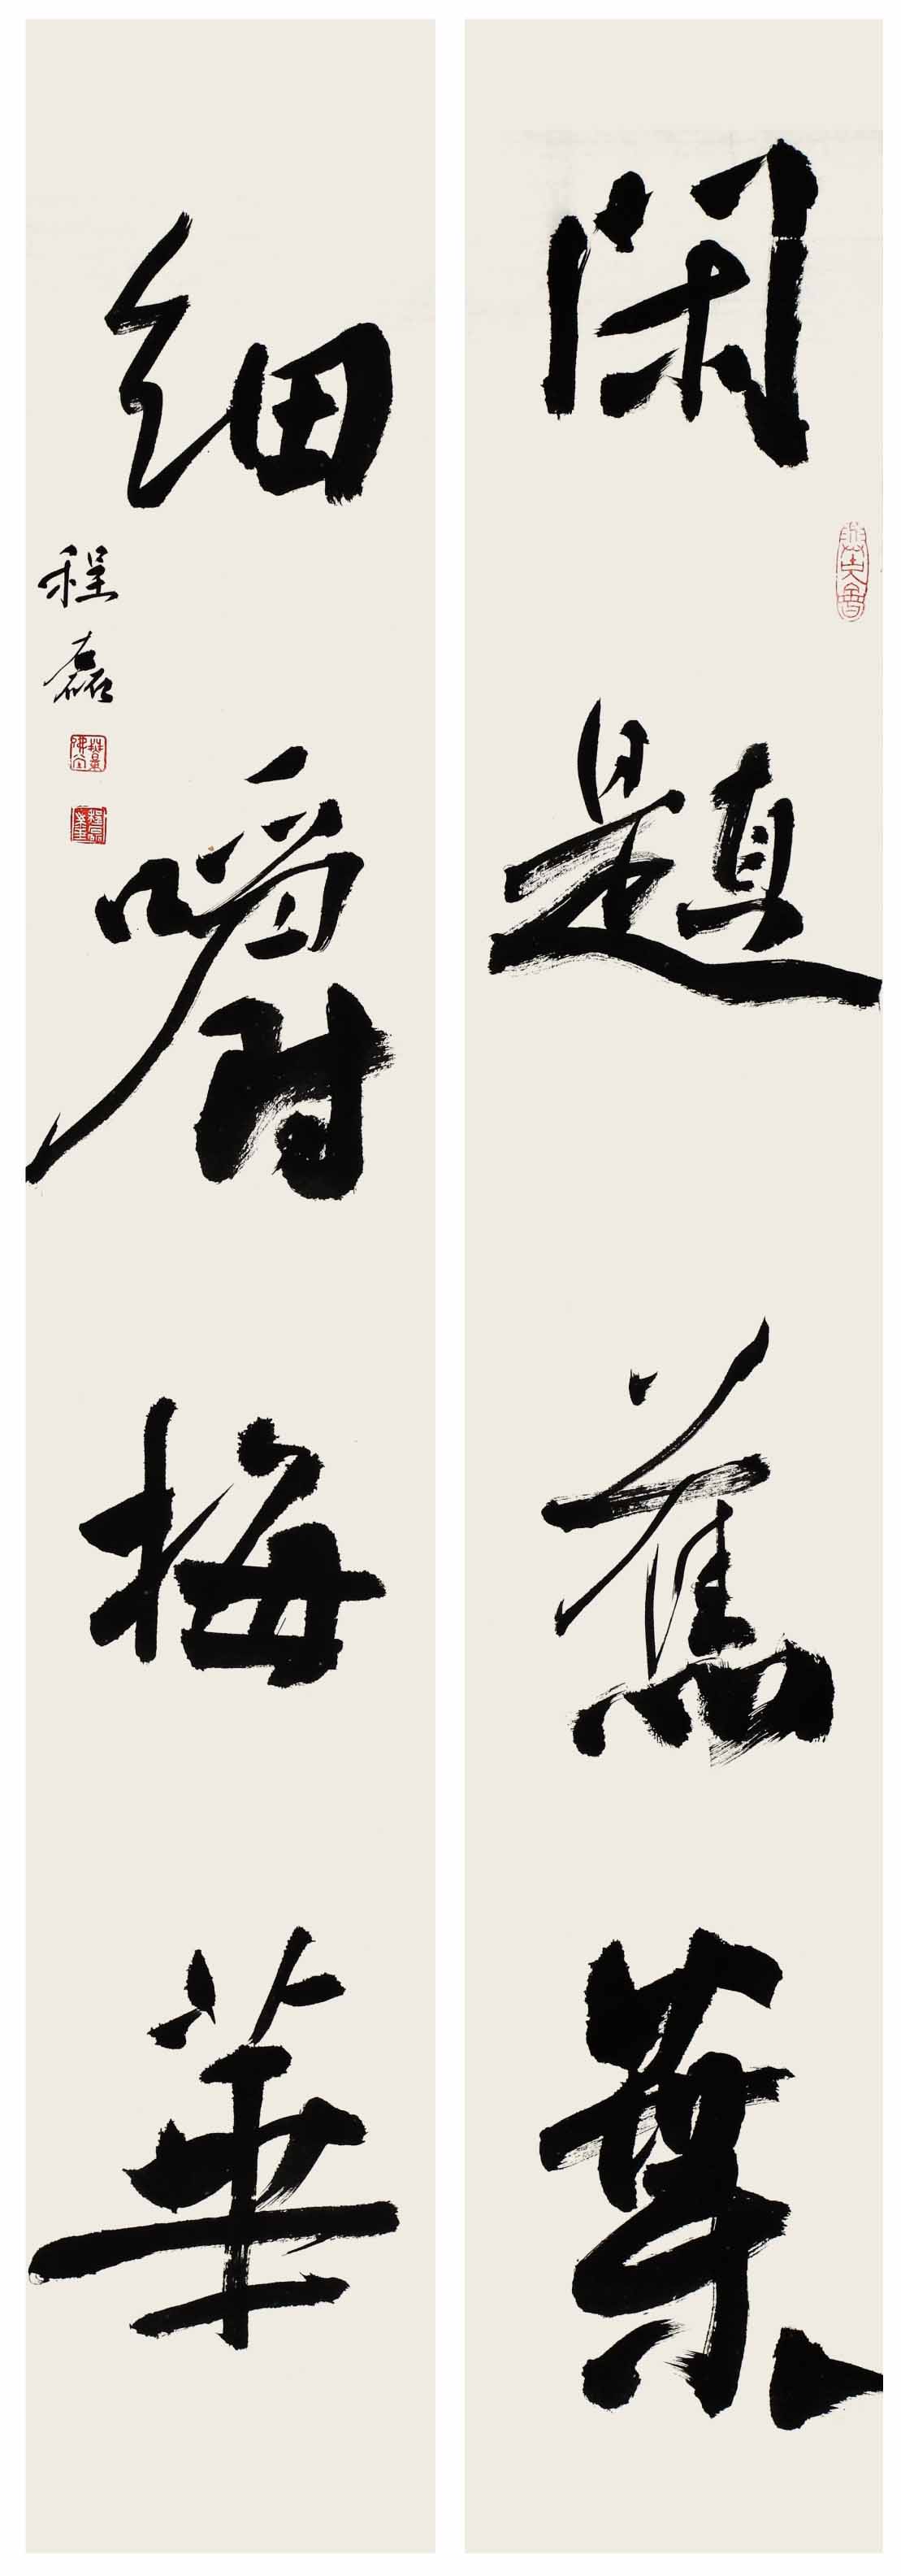 閑題蕉葉
細嚼梅華
程磊